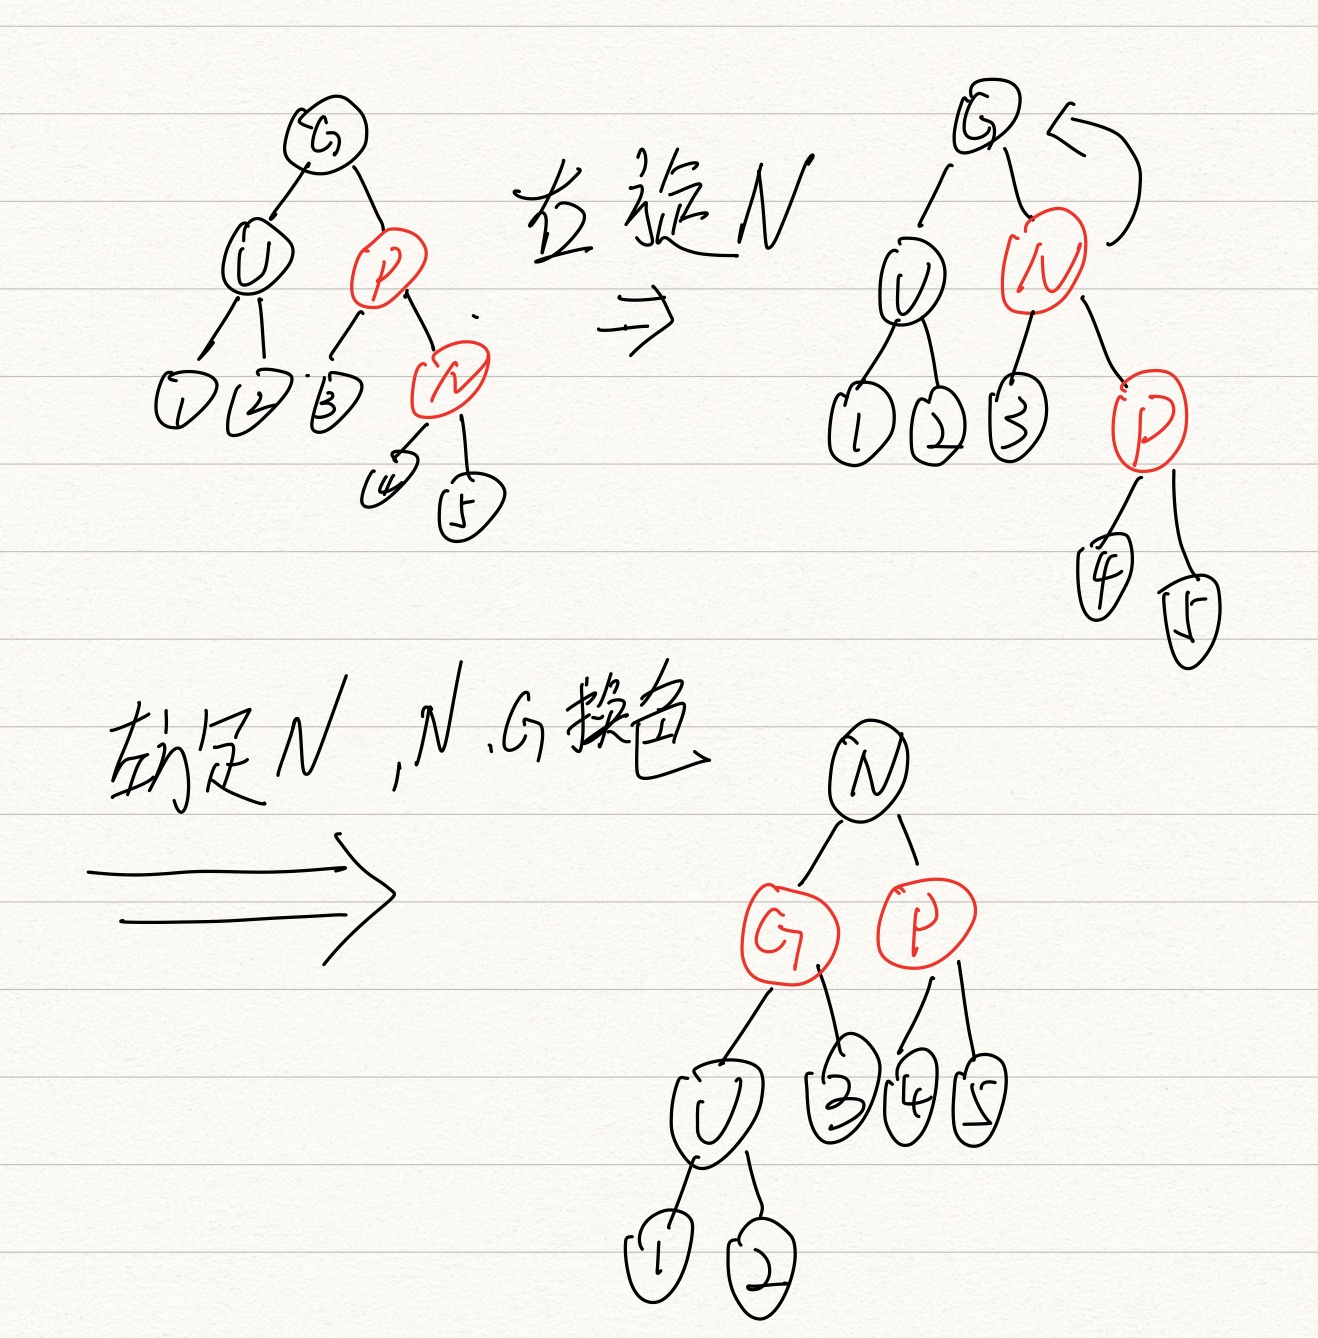 G
U P
1 2 3 N
4 5
右旋N
G
U N
1 2 3 P
4 5
左旋N,N、G换色
N
G P
U 3 4 5
1 2